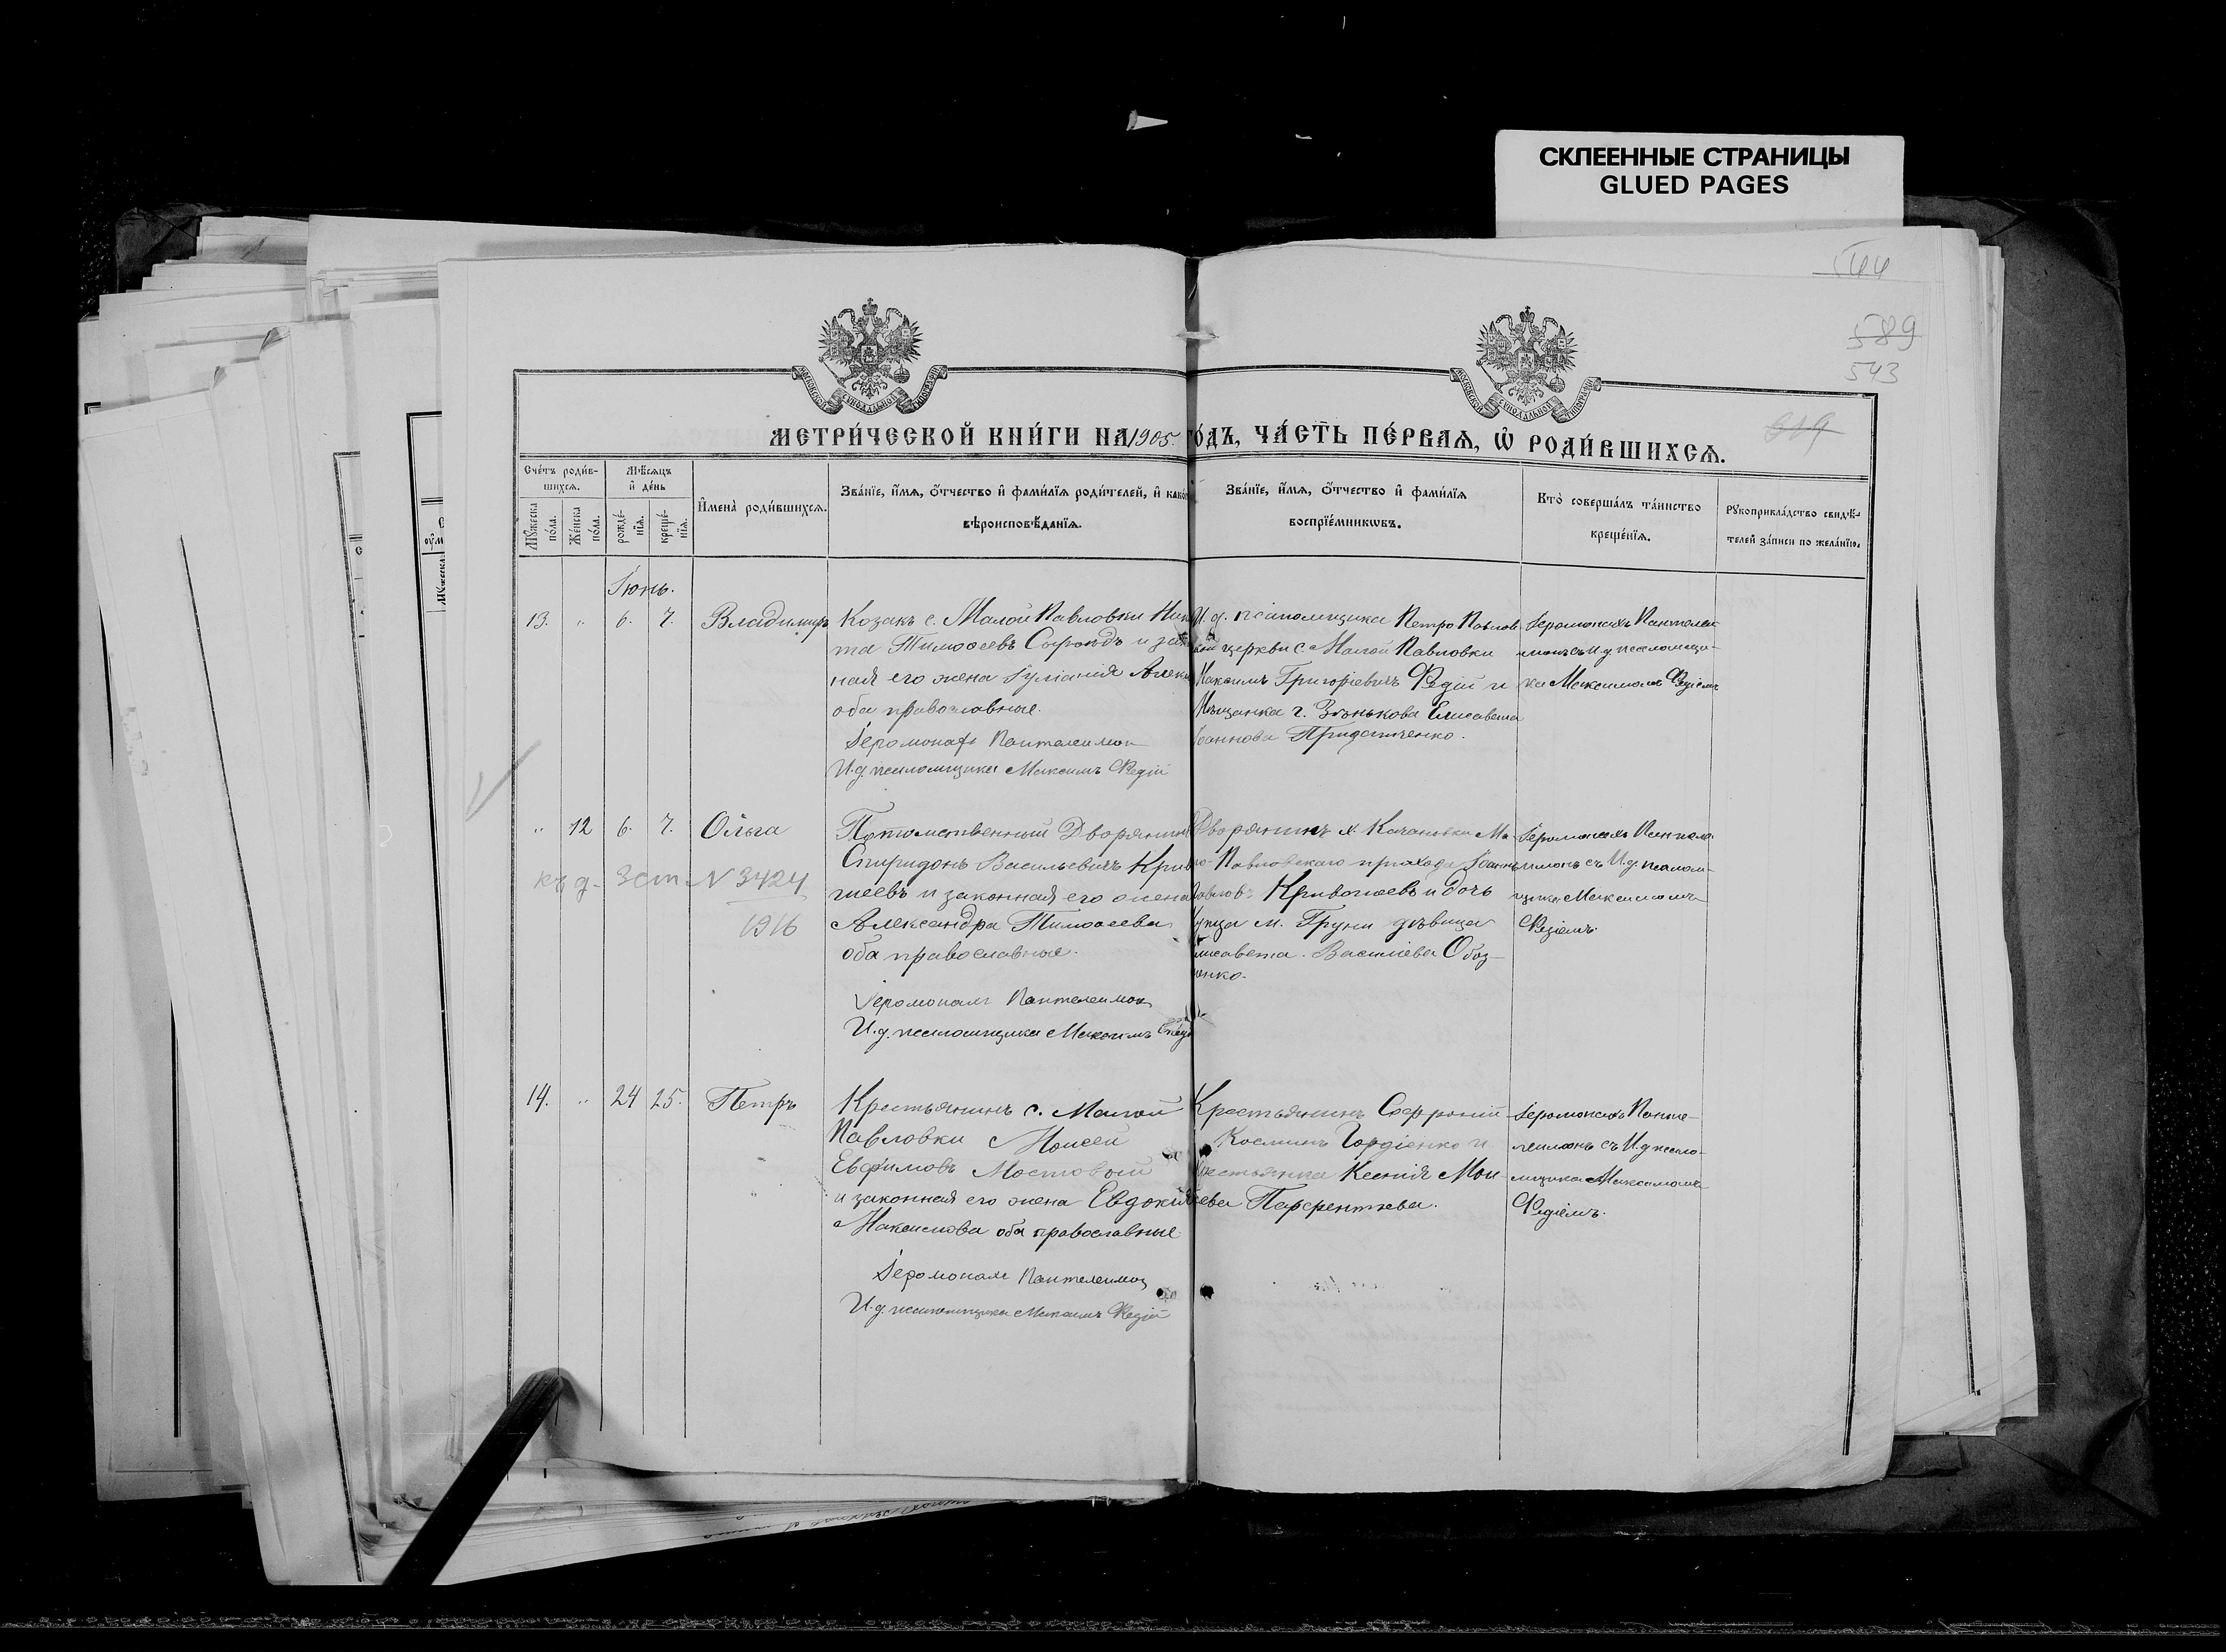 СКЛЕЕННЫЕ СТРАНИЦЫ
GLUED PAGES
544
589
543
МЕТРИ́ЧЕСКОЙ КНИ́ГИ НА 1905. ГО́ДЪ, ЧА́СТЬ ПЕ́РВАѦ, Ѡ҆ РОДИ́ВШИХСѦ.
Счéтъ роди́в-
шихсѧ.
Мѣ́сѧцъ
и҆ де́нь
Мꙋжеска
по́ла.
Же́нска
по́ла.
рожде́-
нїѧ.
креще́-
нїѧ.
И҆мена̀ роди́вшихсѧ.
Зва́нїе, и҆́мѧ, ѻ҆́тчество и҆ фами́лїѧ роди́телей, и҆ како́
вѣроисповѣ́данїѧ.
Зва́нїе, и҆́мѧ, ѻ҆́тчество и҆ фами́лїѧ
воспрїе́мникѡвъ.
Кто̀ соверша́лъ та́инство
креще́нїѧ.
Рꙋкоприкла́дство свидѣ́-
телей за́писи по жела́нїю.
Іюнь.
13. „ 6. 7. Владимиръ
Козакъ с. Малой Павловки Ник
та Тимофеевъ и зак
ная его жена Іуліанія Алек
оба православные.
Іеромонахъ Пантелеимон
И.д. псаломщика Максимъ Федій
И. д. псаломщика Петро Павлов
кой церкви с. Малой Павловки
Максимъ Григоріевичъ Федій и
Мѣщанка г. Зѣнькова Елисавета
Іоаннова
Іеромонахъ Пантелеи-
монъ съ И д псаломщи-
ка Максимомъ Федіемъ
„ 12 6. 7. Ольга
Потомственный Дворянинъ
Спиридонъ Васильевичъ Криво
шеевъ и законная его жена
Александра Тимофеева
оба православные.
Іеромонахъ Пантелеимон
И.д. псаломщика Максимъ Федій
Дворянинъ х. Качановки Ма-
ло-Павловскаго прихода Іоаннъ
Павловъ Кривошеевъ и дочь
купца м. Груни дѣвица
Елисавета Василіева Обоз-
ненко.
Іеромонахъ Пантеле-
имонъ съ И.д. псалом-
щика Максимомъ
Федіемъ.
къ д. 3 ст N 3424
1916
14. „ 24 25. Петръ
Крестьянинъ с. Малой
Павловки Моисей
Евфимовъ Мостовой
и законная его жена Евдокія
Максимова оба православные
Іеромонахъ Пантелеимон
И.д. псаломщика Максимъ Федій
Крестьянинъ Софроній
Косминъ Гордіенко и
Крестьянка Ксенія Мои-
сеева Парфентьева.
Іеромонахъ Панте-
леимонъ съ И д псало-
мщика Максимомъ
Федіемъ.